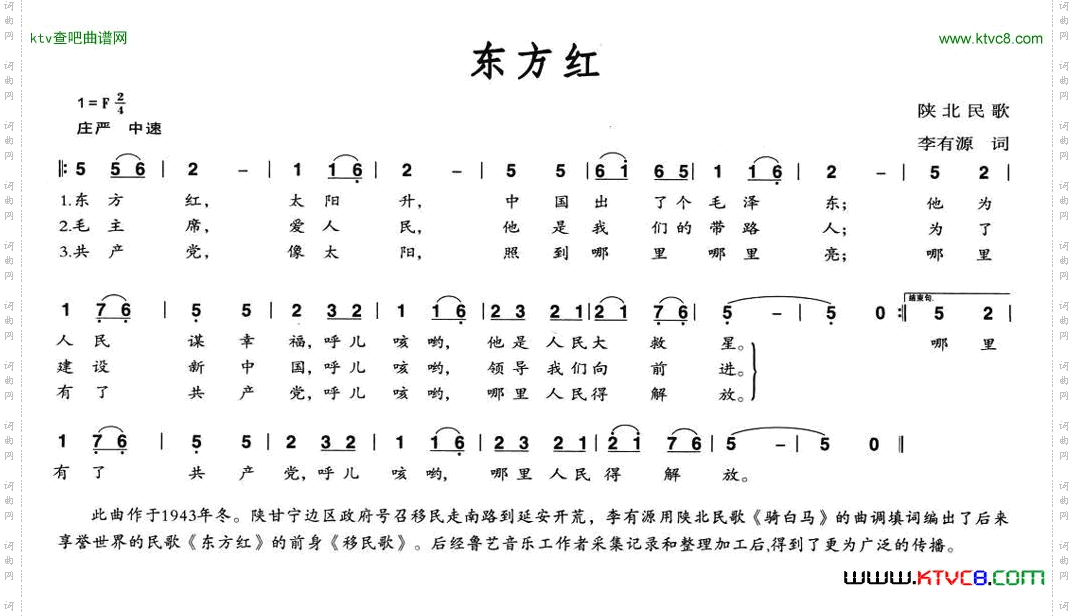 ktv查吧曲谱网
www.ktvc8.com
东方红
1=F 2/4
陕北民歌
庄严 中速
李有源 词
‖: 5 5 6 | 2 – | 1 1 6 | 2 – | 5 5 | 6 1 6 5 | 1 1 6 | 2 – | 5 2 |
1.东 方 红， 太 阳 升， 中 国 出 了 个 毛 泽 东； 他 为
2.毛 主 席， 爱 人 民， 他 是 我 们 的 带 路 人； 为 了
3.共 产 党， 像 太 阳， 照 到 哪 里 哪 里 亮； 哪 里
结束句.
1 7 6 | 5 5 | 2 3 2 | 1 1 6 | 2 3 2 1 | 2 1 7 6 | 5 – | 5 0 :‖ 5 2 |
人 民 谋 幸 福，呼 儿 咳 哟， 他 是 人 民 大 救 星。 哪 里
建 设 新 中 国，呼 儿 咳 哟， 领 导 我 们 向 前 进。
有 了 共 产 党，呼 儿 咳 哟， 哪 里 人 民 得 解 放。
1 7 6 | 5 5 | 2 3 2 | 1 1 6 | 2 3 2 1 | 2 1 7 6 | 5 – | 5 0 ‖
有 了 共 产 党，呼 儿 咳 哟， 哪 里 人 民 得 解 放。
此曲作于1943年冬。陕甘宁边区政府号召移民走南路到延安开荒，李有源用陕北民歌《骑白马》的曲调填词编出了后来
享誉世界的民歌《东方红》的前身《移民歌》。后经鲁艺音乐工作者采集记录和整理加工后,得到了更为广泛的传播。
www.KTVC8.com